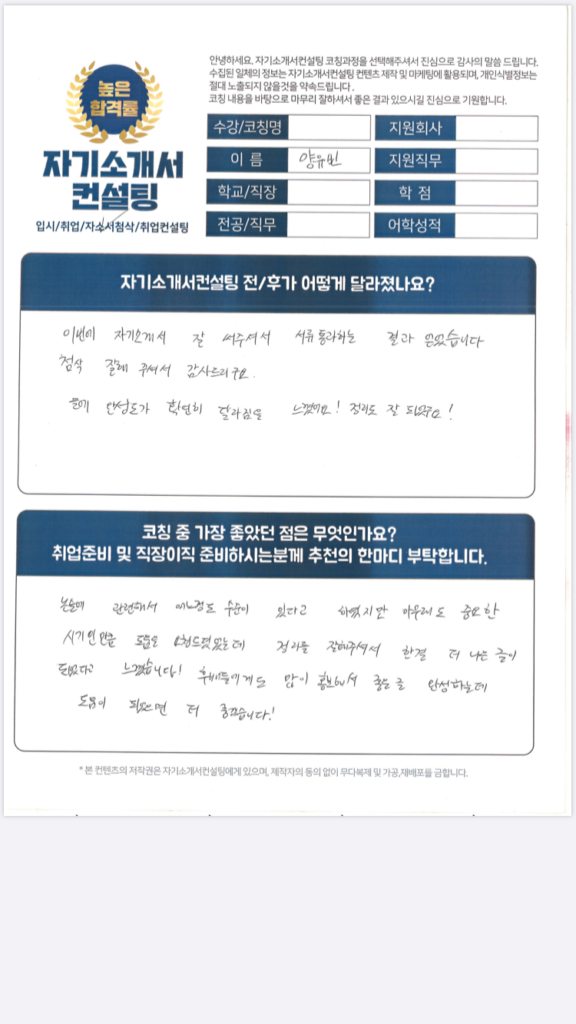 높은
합격률
자기소개서
컨설팅
입시/취업/자소서첨삭/취업컨설팅
안녕하세요. 자기소개서컨설팅 코칭과정을 선택해주셔서 진심으로 감사의 말씀 드립니다.
수집된 일체의 정보는 자기소개서컨설팅 컨텐츠 제작 및 마케팅에 활용되며, 개인식별정보는
절대 노출되지 않을것을 약속드립니다.
코칭 내용을 바탕으로 마무리 잘하셔서 좋은 결과 있으시길 진심으로 기원합니다.
수강/코칭명 지원회사
이 름 양유빈 지원직무
학교/직장 학 점
전공/직무 어학성적
자기소개서컨설팅 전/후가 어떻게 달라졌나요?
이번에 자기소개서 잘 써주셔서 서류통과하는 결과 얻었습니다
첨삭 잘해 주셔서 감사드리구요.
완성도가 확연히 달라짐을 느꼈어요! 정리도 잘 되었구요!
코칭 중 가장 좋았던 점은 무엇인가요?
취업준비 및 직장이직 준비하시는분께 추천의 한마디 부탁합니다.
관련해서 어느정도 수준이 있다고 하였지만 마무리도 중요한
시기인만큼 도움을 요청드렸었는데 정리를 잘해주셔서 한결 더 나은 글이
되었다고 느꼈습니다! 후배들에게도 많이 홍보해서 좋은 글 완성하는데
도움이 되었으면 더 좋겠습니다!
* 본 컨텐츠의 저작권은 자기소개서컨설팅에게 있으며, 제작자의 동의 없이 무다복제 및 가공,재배포를 금합니다.